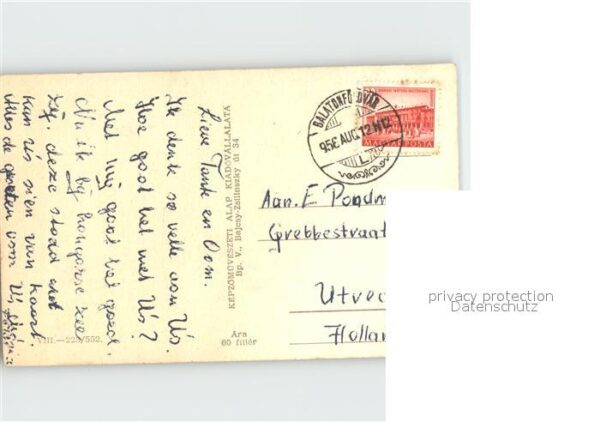 Lieve Tante en Oom.
Ik denk so velle aan Us.
Hoe gaat het met Us?
Met mij gaat het goed.
Nu ik bij hongarse zee
zij. deze stad
kan Us sien van kaart.
Als de groeten vom Us
KÉPZŐMŰVÉSZETI ALAP KIADÓVÁLLALATA
Bp. V., Bajcsy-Zsilinszky út 34
VIII.—225/552.
Ára
60 fillér
BALATONFÖLDVÁR
956 AUG 12
MAGYAR POSTA
Aan. E Pondm
Grebbestraat
Utrec
Hollan
privacy protection
Datenschutz